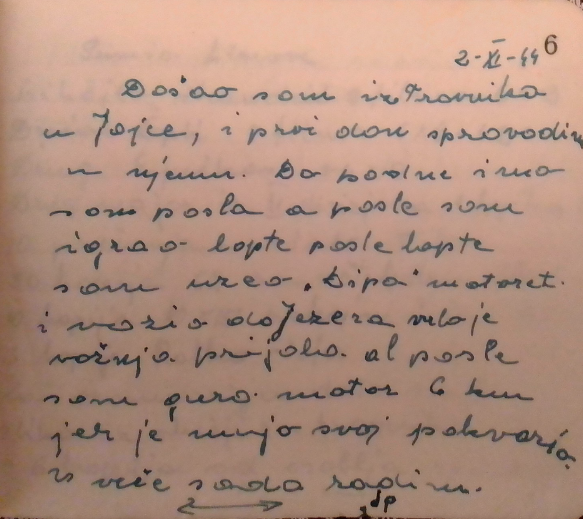 6
2-XI-44
Došao sam iz Travnika
u Jajce, i prvi dan sprovodim
u njemu. Do podne imao
sam posla a posle sam
igrao lopte posle lopte
sam uzeo "Dipa" motoret.
i vozio do Jezera vrlo je
vožnja prijala. al posle
sam guro motor 6 km
jer je mujo svoj pokvario.
veče sada radim.